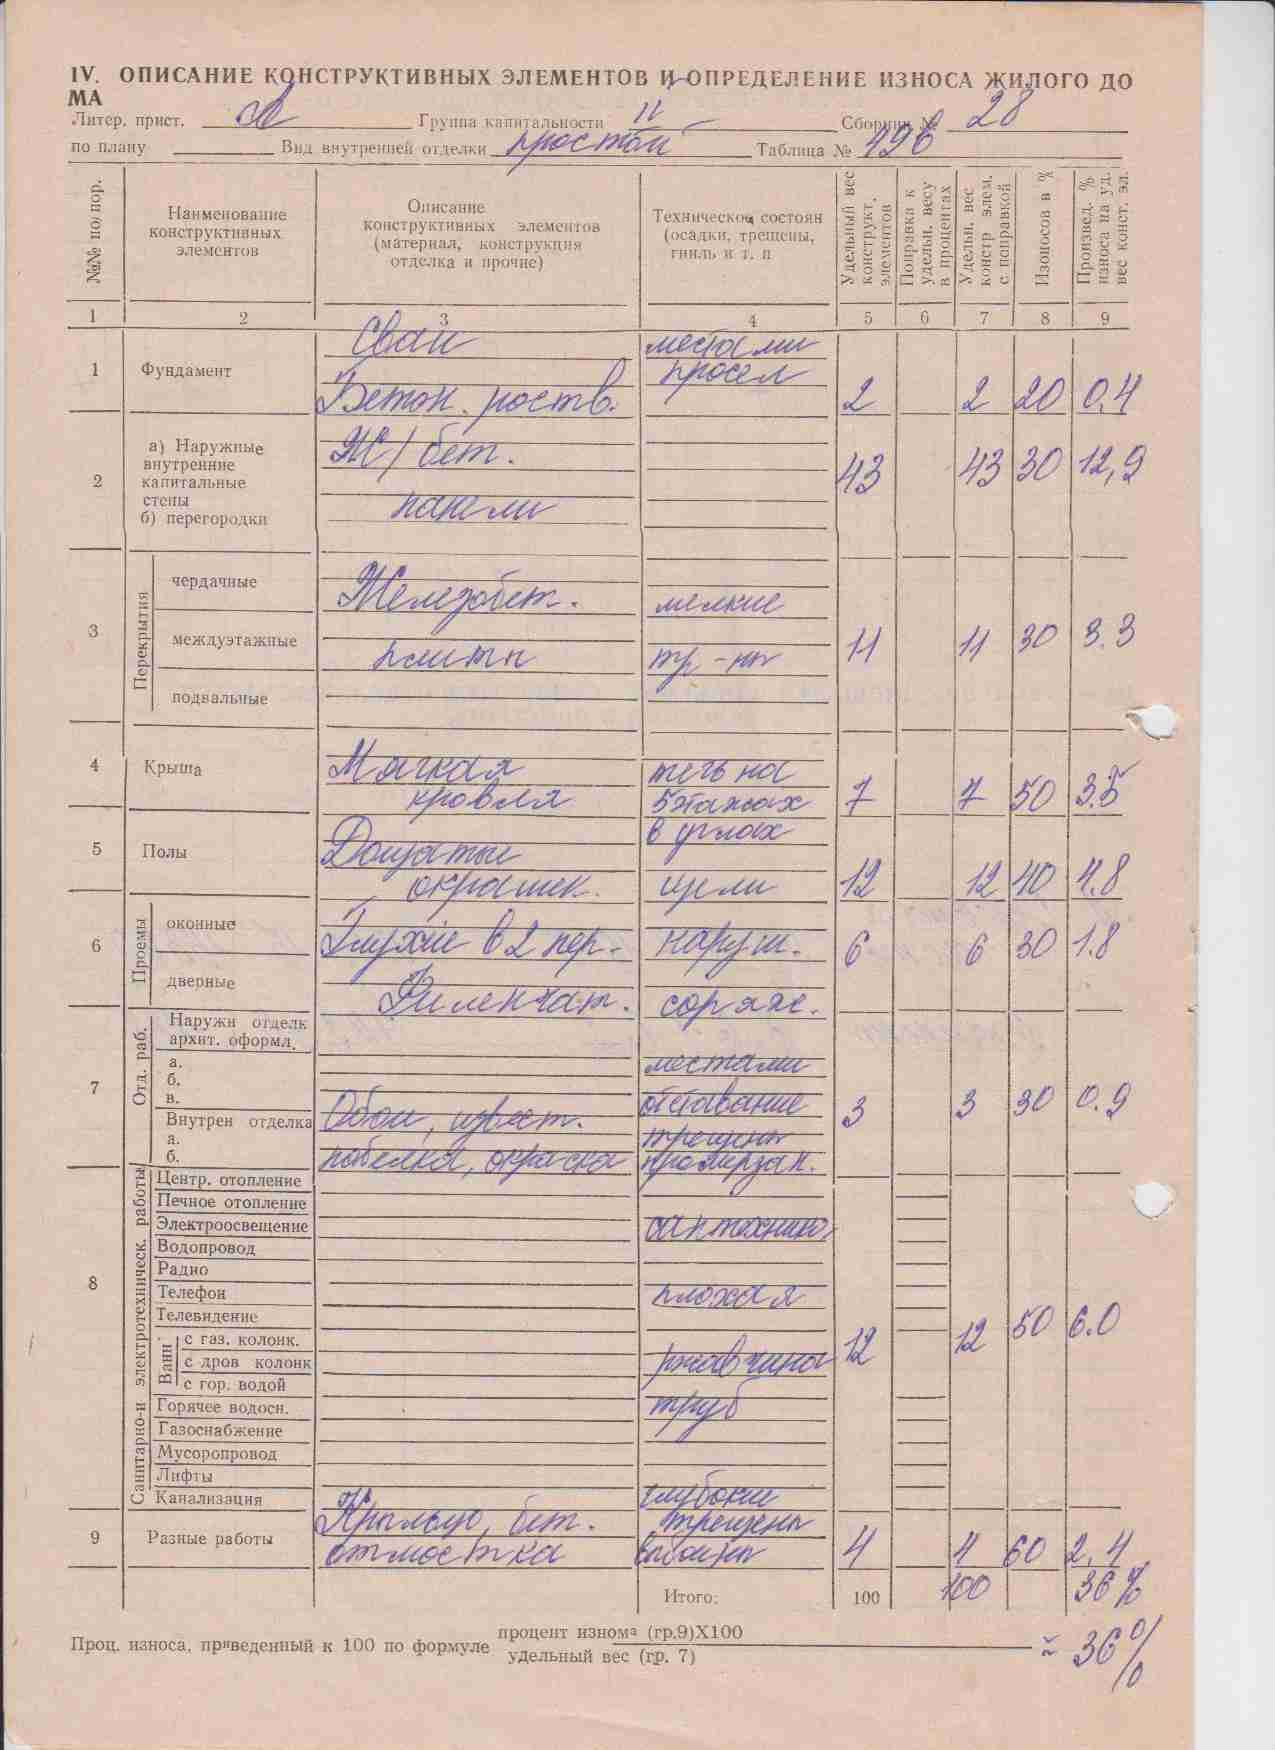 IV. ОПИСАНИЕ КОНСТРУКТИВНЫХ ЭЛЕМЕНТОВ И ОПРЕДЕЛЕНИЕ ИЗНОСА ЖИЛОГО ДО
МА
Литер. прист. А Группа капитальности II Сборник № 28
по плану Вид внутренней отделки простой Таблица № 196
№№ по/пор.
Наименование
конструктивных
элементов
Описание
конструктивных элементов
(материал, конструкция
отделка и прочие)
Техническое состоян
(осадки, трещены,
гниль и т. п
Удельный вес
конструкт,
элементов
Поправка к
удельн. весу
в процентах
Удельн. вес
констр элем.
с поправкой
Изоносов в %
Произвед. %
износа на уд.
вес конст. эл.
1 2 3 4 5 6 7 8 9
Сваи местами
1 Фундамент просел
Бетон. роств. 2 2 20 0.4
2 а) Наружные
внутренние
капитальные
стены
б) перегородки
Ж/бет.
панели
43 43 30 12,9
3 Перекрытия
чердачные Железобет. мелкие
междуэтажные плиты тр-ны 11 11 30 3.3
подвальные
4 Крыша Мягкая течь на
кровля 5 этажах 7 7 50 3.5
в углах
5 Полы Дощатые
окрашен. щели 12 12 40 4.8
6 Проемы
оконные Глухие в 2 пер. наруш. 6 6 30 1.8
дверные Филенчат. сопряж.
7 Отд. раб.
Наружн отделк
архит. оформл.
а. местами
б.
в. отставание 3 3 30 0.9
Внутрен отделка Обои, извест.
а. трещены
б. побелка, окраска промерзан.
8 Санитарно-и электротехническ. работы
Центр. отопление
Печное отопление
Электроосвещение сантехника
Водопровод
Радио
Телефон плохая
Телевидение
Ванн
с газ. колонк. 12 12 50 6.0
с дров колонк ржавчина
с гор. водой
Горячее водосн. труб
Газоснабжение
Мусоропровод
Лифты
Канализация глубокие
Крыльцо, бет. трещены
9 Разные работы отмостка выбоины 4 4 60 2,4
Итого: 100 100 36%
Проц. износа, приведенный к 100 по формуле
процент износа (гр.9)X100
удельный вес (гр. 7)
≈ 36%